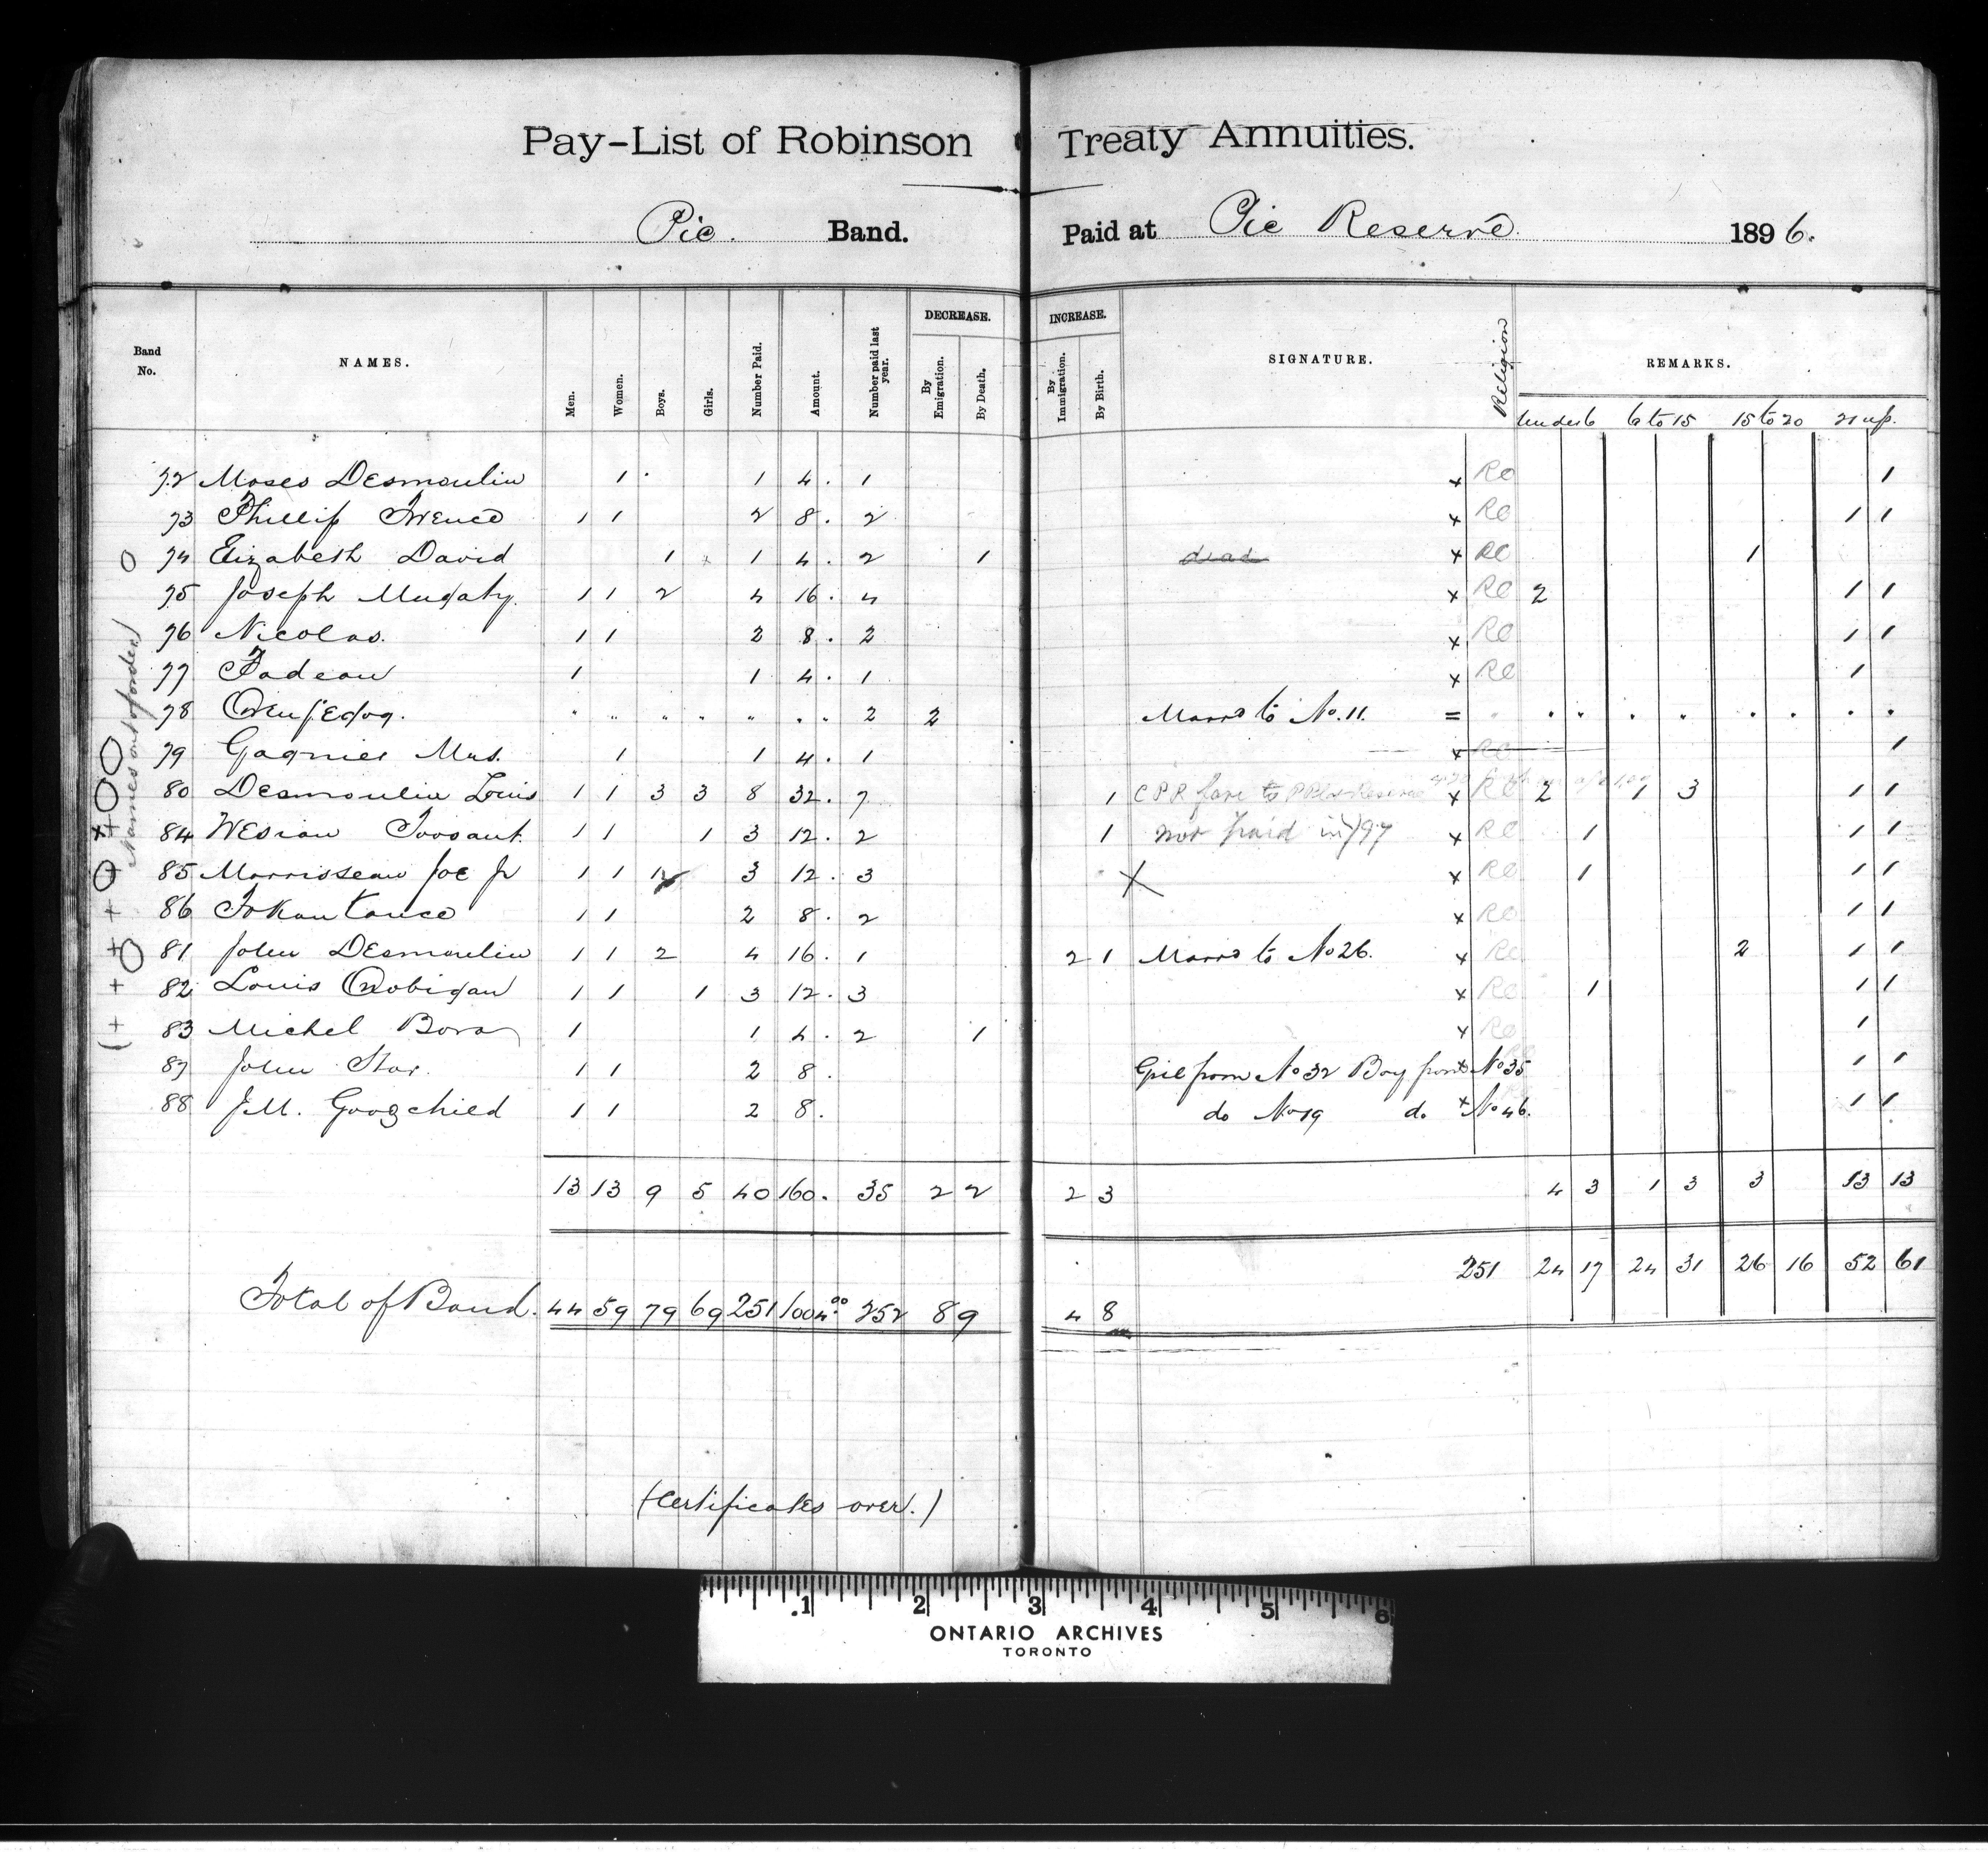 Pay-List of Robinson Treaty Annuities.
Pic. Band. Paid at Pic Reserve 1896.
Band No. NAMES. Men. Women. Boys. Girls. Number Paid. Amount. Number paid last year. DECREASE. By Emigration. By Death. INCREASE. By Immigration. By Birth. SIGNATURE. Religion REMARKS.
Under 6 6 to 15 15 to 20 21 up.
72 Moses Desmoulin 1 1 4. 1 x RC 1
73 Phillip 1 1 2 8. 2 x RC 1 1
74 Elizabeth David 1 1 4. 2 1 dead x RC 1
75 Joseph 1 1 2 4 16. 4 x RC 2 1 1
76 Nicolas. 1 1 2 8. 2 x RC 1 1
77 Fadeau 1 1 4. 1 x RC 1
78 2 2 Marrd to No. 11. =
79 Gagnier Mrs. 1 1 4. 1 x RC 1
80 Desmoulin Louis 1 1 3 3 8 32. 7 1 CPR fare to Reserve x RC 2 1 3 1 1
84 Wesian Toosant. 1 1 1 3 12. 2 1 not paid in /97 x RC 1 1 1
85 Morrisseau Joe Jr 1 1 1 3 12. 3 x RC 1 1 1
86 1 1 2 8. 2 x RC 1 1
81 John Desmoulin 1 1 2 4 16. 1 2 1 Marrd to No 26. x RC 2 1 1
82 Louis 1 1 1 3 12. 3 x RC 1 1 1
83 Michel 1 1 4. 2 1 x RC 1
87 John Star. 1 1 2 8. Girl from No 32 Boy from No 35 1 1
88 J.M. Googchild 1 1 2 8. do No 19 do x No 46. 1 1
(Names out of order)
13 13 9 5 40 160. 35 2 2 2 3 4 3 1 3 3 13 13
251 24 17 24 31 26 16 52 61
Total of Band. 44 59 79 69 251 1004.00 252 8 9 4 8
(Certificates over.)
1 2 3 4 5 6
ONTARIO ARCHIVES
TORONTO